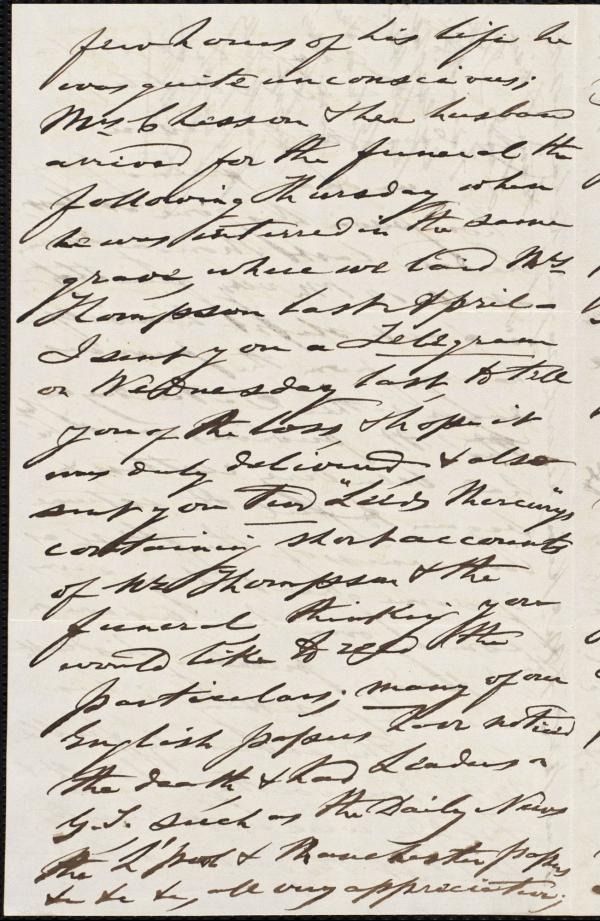 few hours of his life he
was quite unconscious;
Mrs Chesson & her husband
arrived for the funeral the
following Thursday when
he was interred in the same
grave where we laid Mrs
Thompson last April -
I sent you a Telegram
on Wednesday last to tell
you of the loss & hope it
was duly delivered & also
sent you Two "Leeds Mercury"s
containing short accounts
of Mr Thompson & the
funeral thinking you
would like to read the
particulars; many of our
English papers have noticed
the death & had Leaders on
G.T. such as the Daily News
the L'pool & Manchester papers
&c &c &c, all very appreciative;